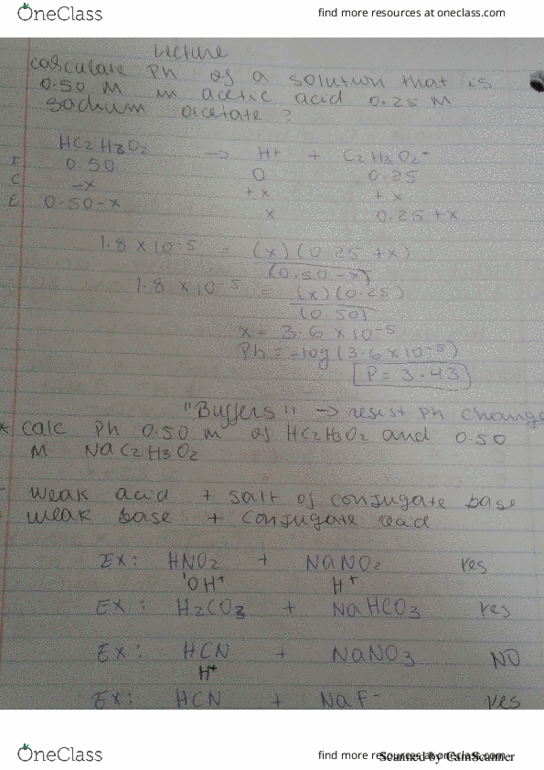 OneClass find more resources at oneclass.com
Lecture
calculate Ph of a solution that is
0.50 M in acetic acid 0.25 M
sodium acetate?
HC2H3O2 → H+ + C2H3O2-
I 0.50 0 0.25
C -x +x +x
E 0.50-x x 0.25+x
1.8 x 10-5 = (x)(0.25+x)
(0.50-x)
1.8 x 10-5 = (x)(0.25)
(0.50)
x = 3.6 x 10-5
Ph = -log(3.6 x 10-5)
P = 3.43
"Buffers" → resist Ph change
* calc Ph 0.50 m of HC2H3O2 and 0.50
M NaC2H3O2
- weak acid + salt of conjugate base
- weak base + conjugate acid
Ex: HNO2 + NaNO2 Yes
OH+ H+
Ex: H2CO3 + NaHCO3 Yes
Ex: HCN + NaNO3 NO
H+
Ex: HCN + NaF- Yes
OneClass find more resources at oneclass.com
Scanned by CamScanner